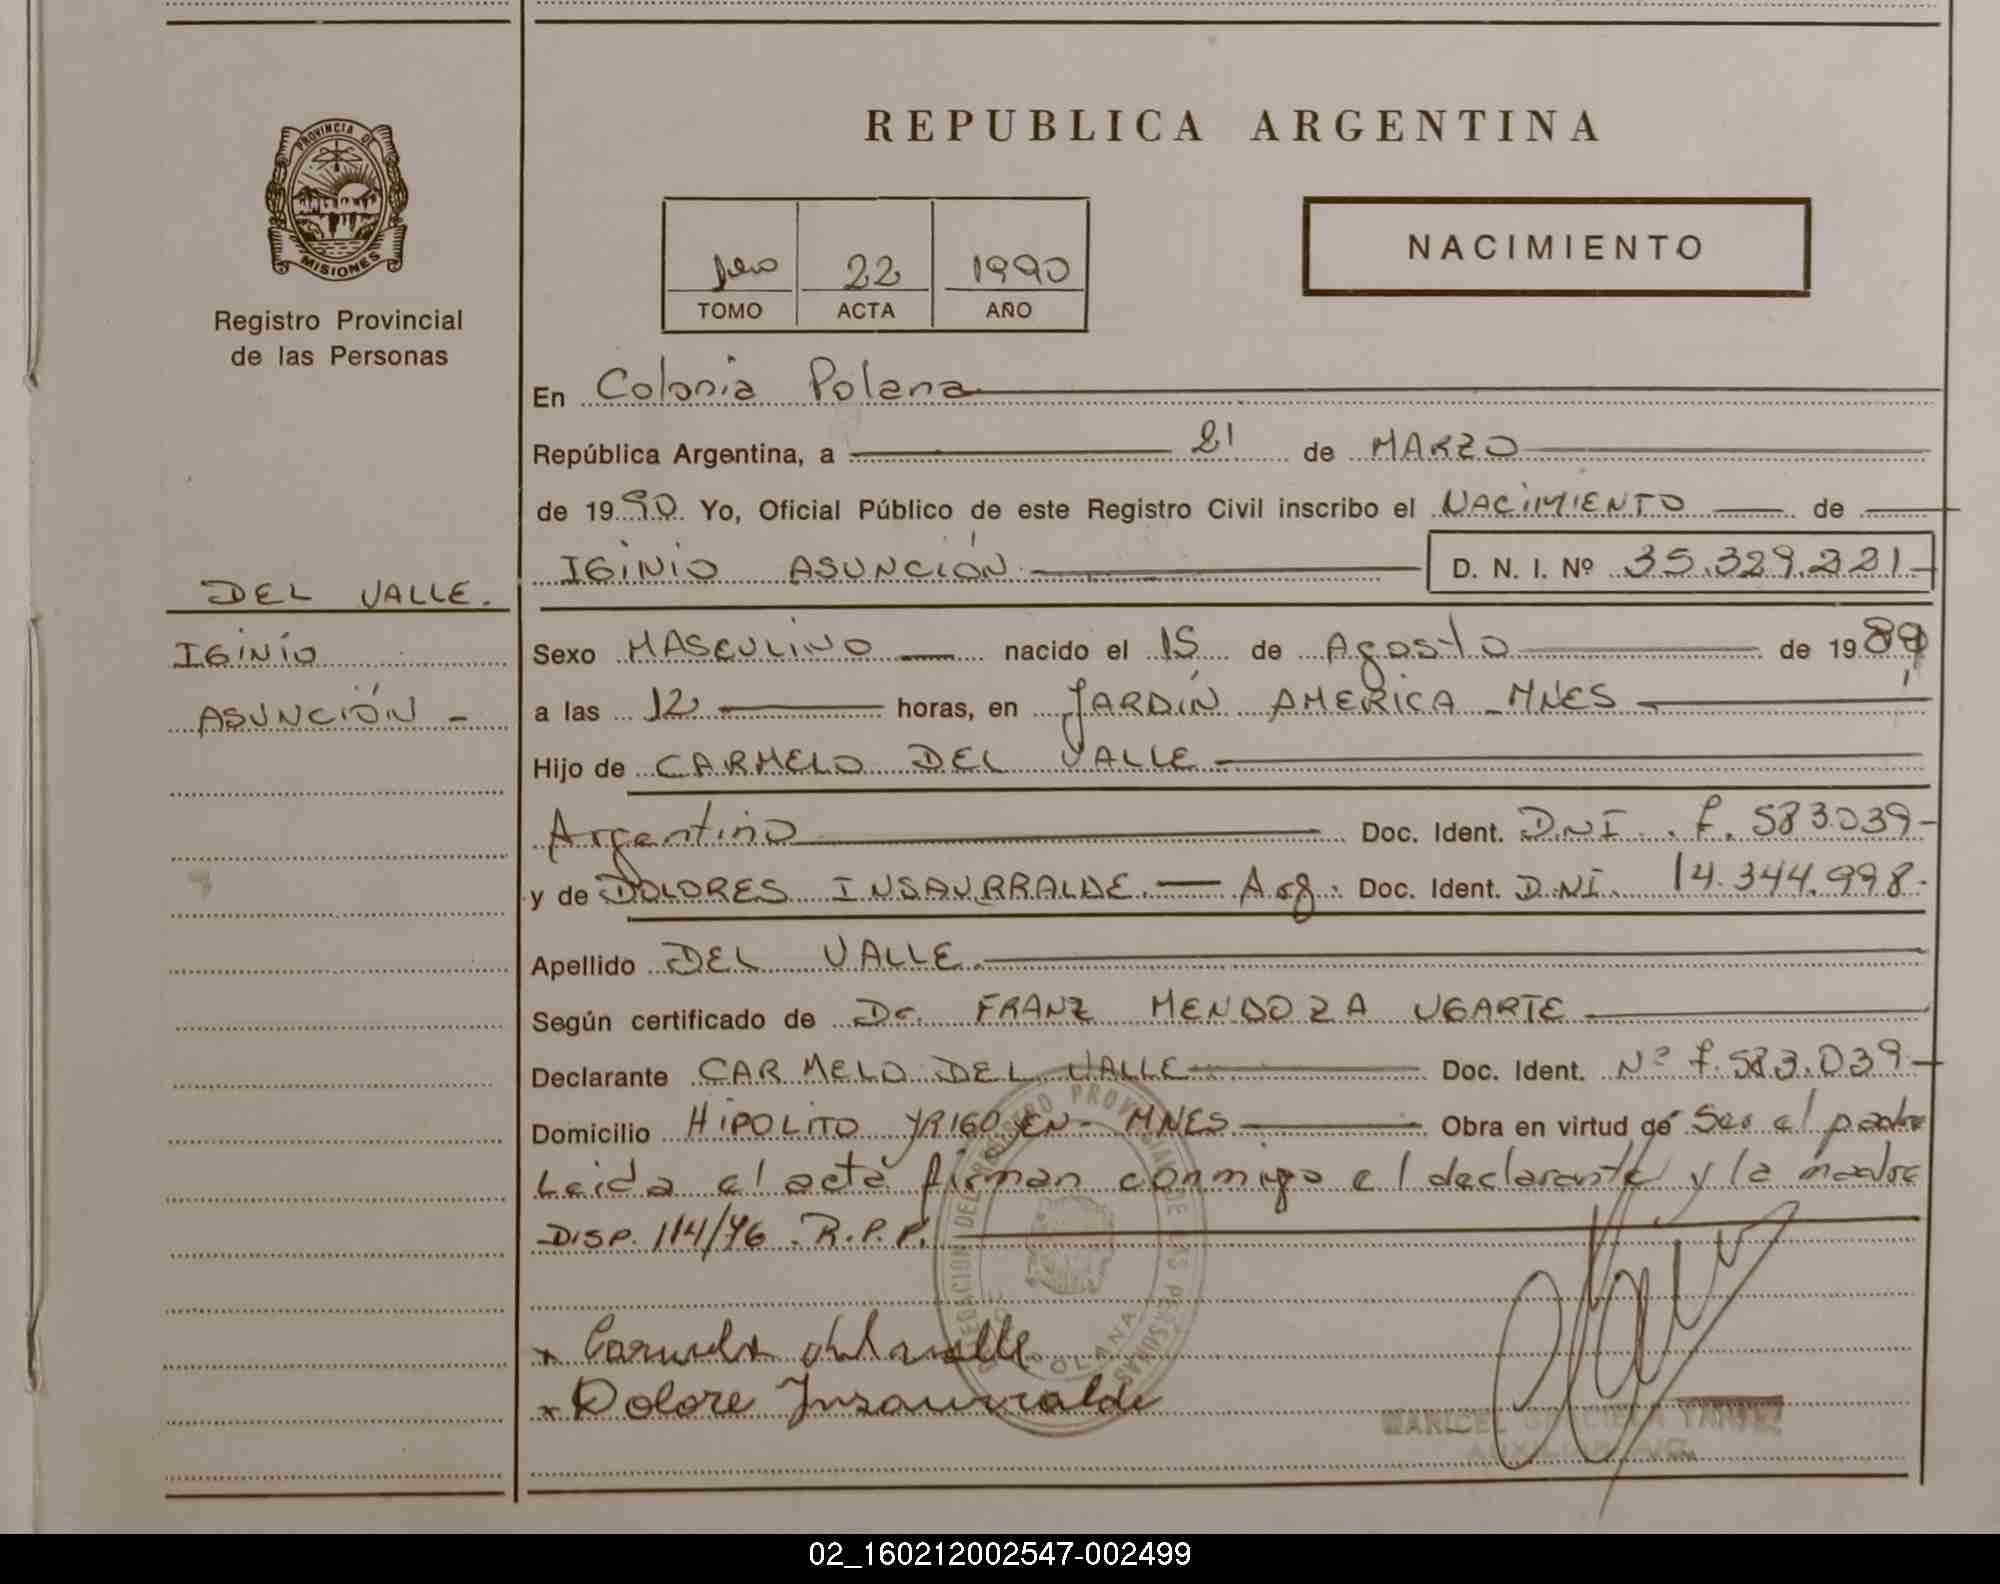 PROVINCIA DE
MISIONES
Registro Provincial
de las Personas
REPUBLICA ARGENTINA
NACIMIENTO
22 1990
TOMO ACTA AÑO
En Colonia Polana
República Argentina, a 21 de MARZO
de 1990 Yo, Oficial Público de este Registro Civil inscribo el NACIMIENTO de
IGINIO ASUNCIÓN D. N. I. Nº 35.329.221
DEL VALLE.
IGINIO
ASUNCIÓN -
Sexo MASCULINO nacido el 15 de Agosto de 1989
a las 12 horas, en JARDIN AMERICA - MNES
Hijo de CARMELO DEL VALLE
Argentino Doc. Ident. D.N.I. 7.583.039-
y de DOLORES INSAURRALDE. Arg. Doc. Ident. D.NI. 14.344.998-
Apellido DEL VALLE
Según certificado de Dr. FRANZ MENDOZA UGARTE
Declarante CARMELO DEL VALLE Doc. Ident. Nº 7.583.039
Domicilio HIPOLITO YRIGOYEN - MNES Obra en virtud de Ser el padre
Leida el acta firman conmigo el declarante y la madre
DISP. 114/76. R.P.P.
x Carmelo del valle
x Dolore Insaurralde
MARICEL GRACIELA
02_160212002547-002499